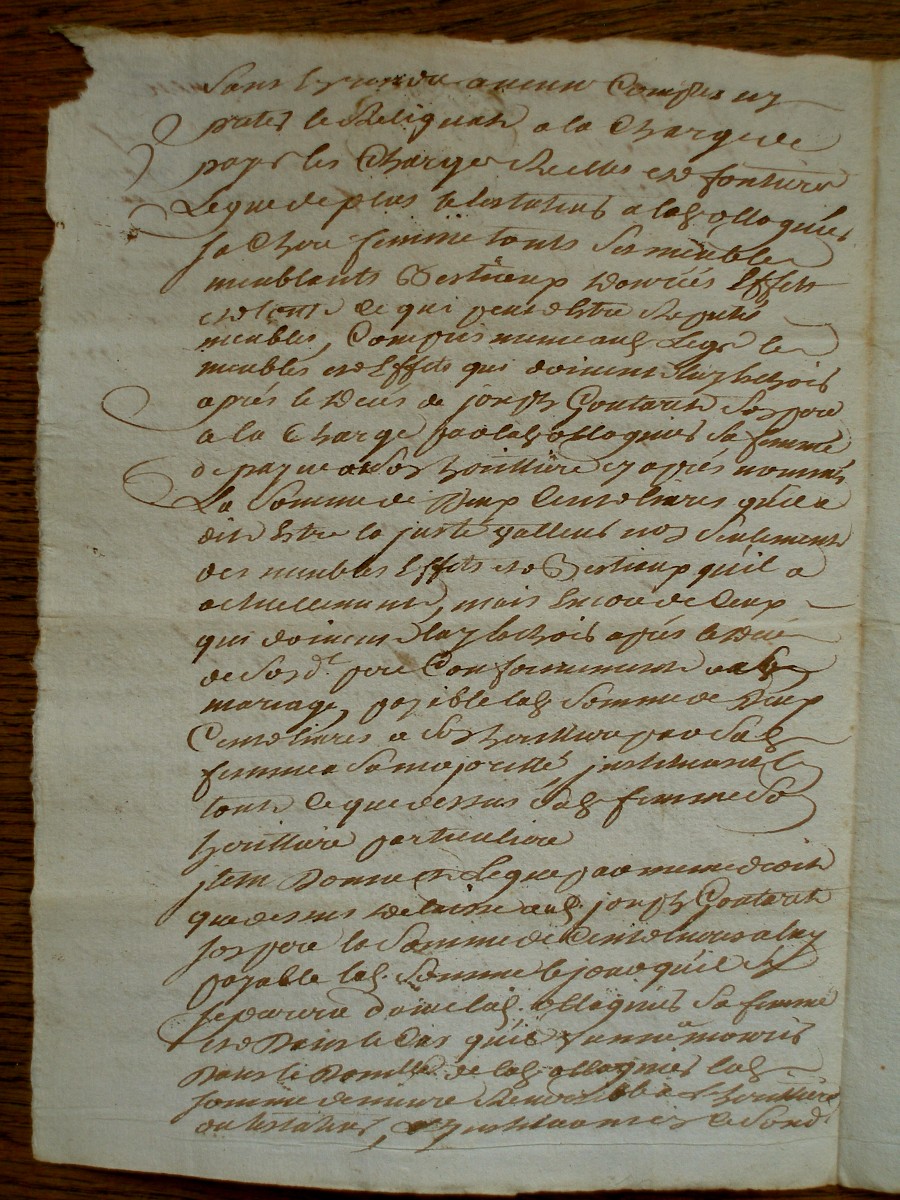 sans En rendre aucun Compte ny
preter le Reliquat, a la Charge de
payer les Charges Reelles et fontieres
Legue de plus le testateur a lad. Allagnier
sa chere femme touts ses meubles
meublants Bestieaux danrées Effets
et tout ce qui peut Estre Reputé
meubles, Compris meme aud. Legs les
meubles et Effets qui doivent luy
après le deces de joseph Goutaret son pere
a la Charge par lad. Allagnier sa femme
de payer a son heritiere cy après nommée
La Somme de Deux Cents livres qu'il a
dit Estre la juste valleur non seulement
des meubles Effets et Bestieaux qu'il a
actuellement, mais Encore de Ceux
qui doivent luy après le deces
de son d.t pere Conformement
mariage, payable lad. Somme de Deux
Cents livres a son heritiere par sad.
femme a sa majorité, instituant
tout ce que dessus sad. femme son
heritiere particuliere
Item Donne et Legue par meme droit
que dessus delaisse aud. joseph Goutaret
son pere la Somme de Cents livres a luy
payable lad. Somme le jour qu'il se
separera d'avec lad. Allagnier sa femme
et Dans le Cas qu'il vienne a mourir
Dans le Domicille de lad. Allagnier lad.
somme demeure a L'heritiere
du testateur, instituant sond.